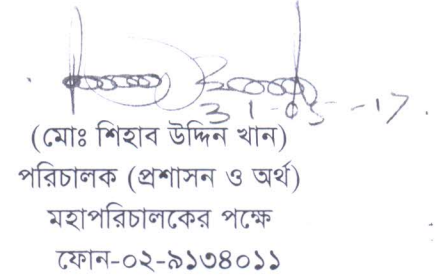 31-05-17.
(মোঃ শিহাব উদ্দিন খান)
পরিচালক (প্রশাসন ও অর্থ)
মহাপরিচালকের পক্ষে
ফোন-০২-৯১৩৪০১১